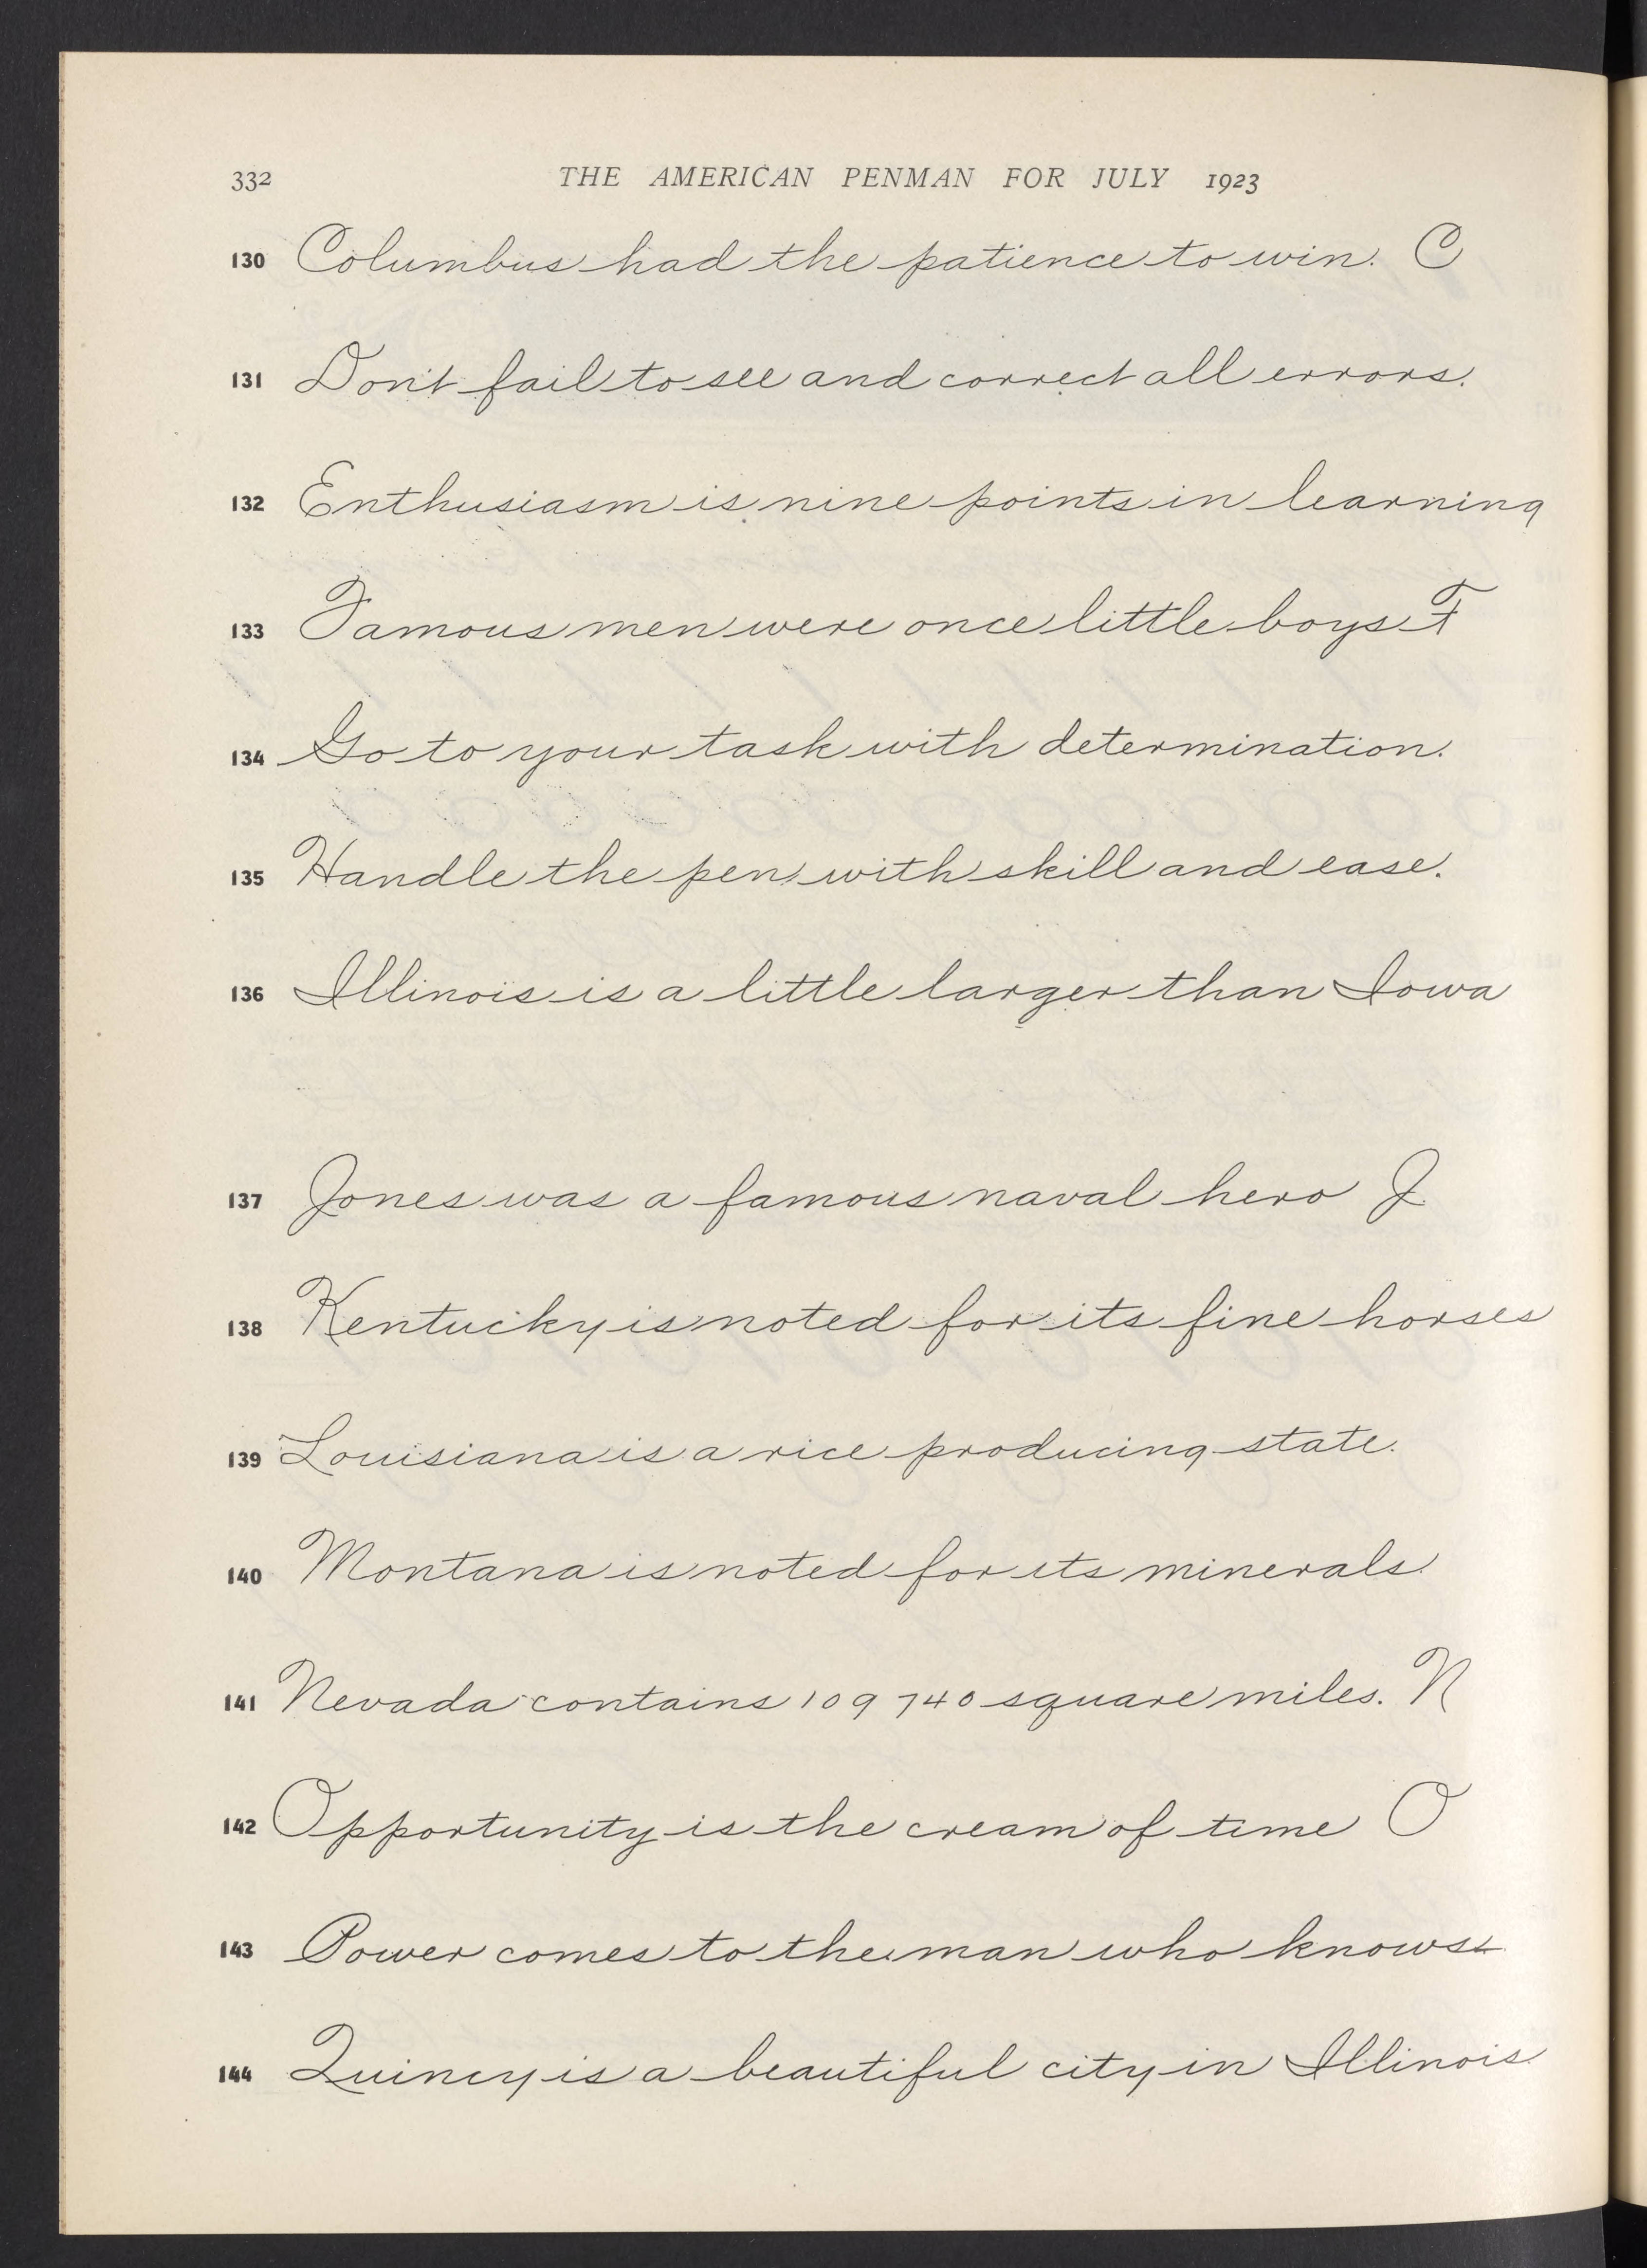 332 THE AMERICAN PENMAN FOR JULY 1923
130 Columbus had the patience to win. C
131 Don't fail to see and correct all errors.
132 Enthusiasm is nine points in learning
133 Famous men were once little boys F
134 Go to your task with determination.
135 Handle the pen with skill and ease.
136 Illinois is a little larger than Iowa
137 Jones was a famous naval hero J
138 Kentucky is noted for its fine horses
139 Louisiana is a rice producing state.
140 Montana is noted for its minerals.
141 Nevada contains 109 740 square miles. N
142 Opportunity is the cream of time O
143 Power comes to the man who knows
144 Quincy is a beautiful city in Illinois.